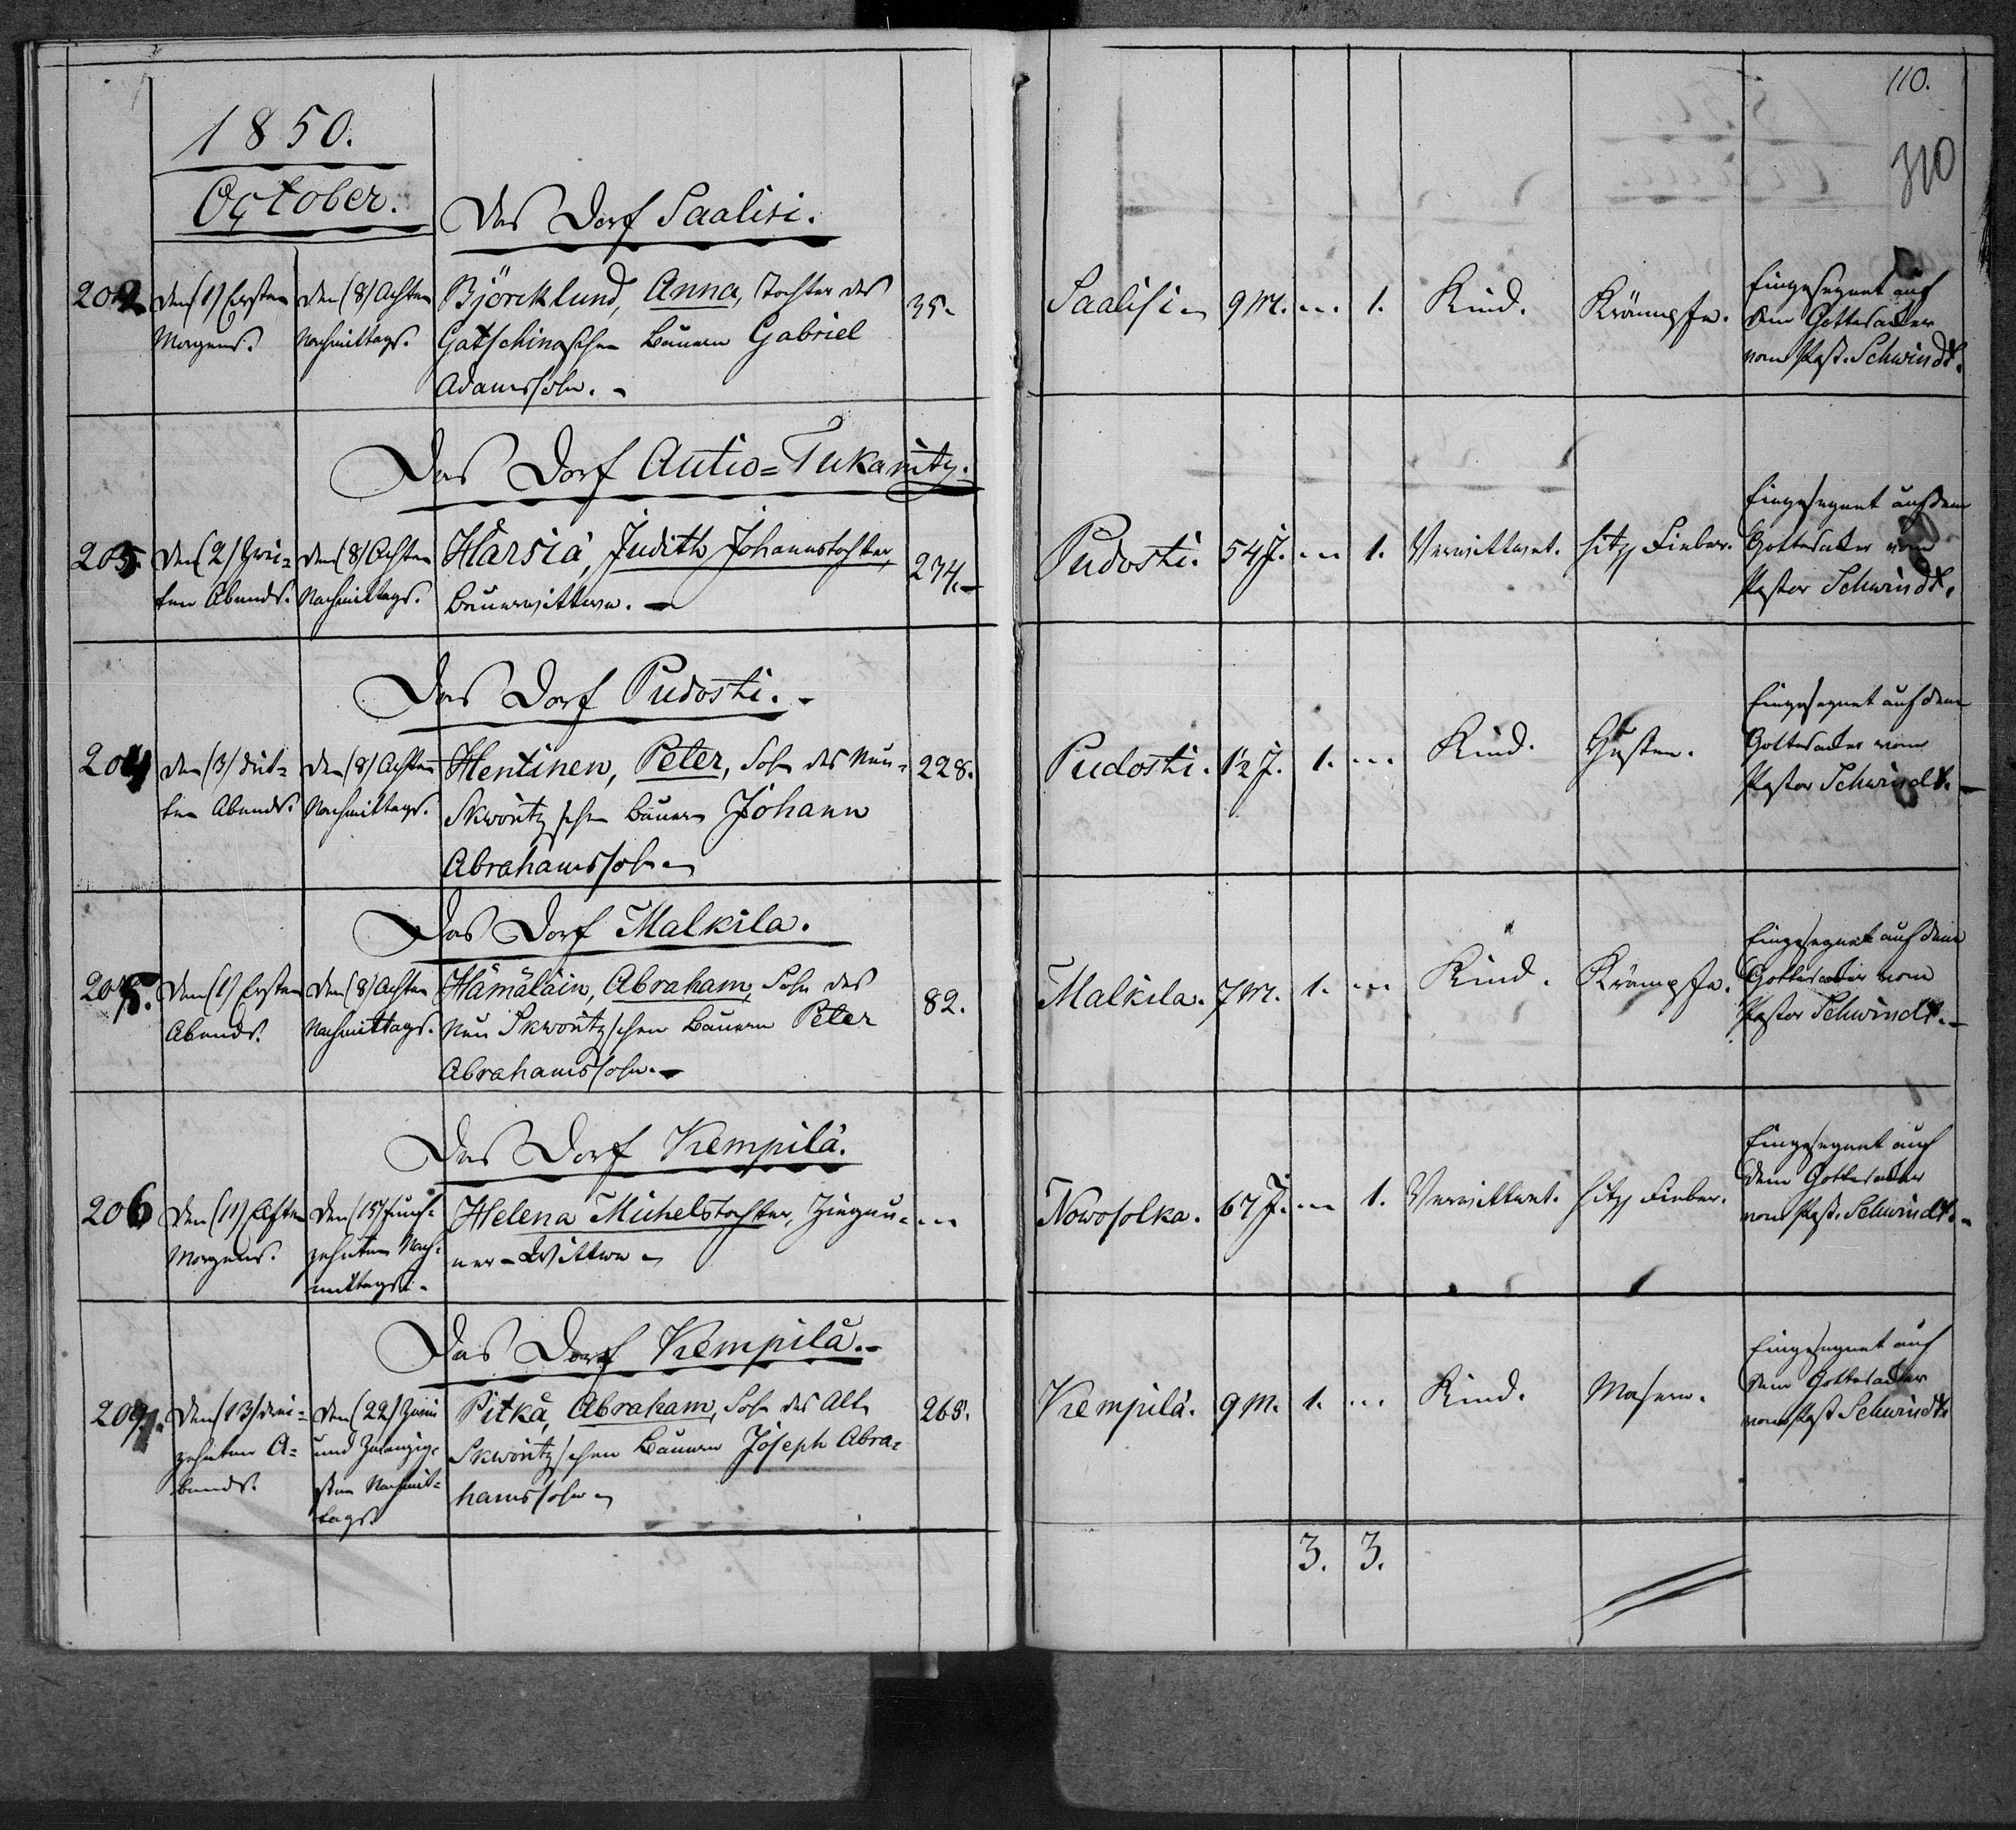 110.
310
1850.
October.
Das Dorf Saalisi.
202 den (1) Ersten Morgens. den (8) Achten Nachmittags. Björcklund, Anna, Tochter des 35.
Gatschinaschen Bauern Gabriel
Adamssohn.
Saalisi 9 M. 1. Kind. Krämpfe. Eingesegnet auf
dem Gottesacker
vom Past. Schwindt.
Das Dorf Autio=Tukanitz.
203. den (2) Zwei=
ten Abends. den (8) Achten
Nachmittags. Härsiä, Judith Johannstochter, 274.
Bauerwittwe.
Pudosti. 54 J. 1. Verwittwet. hitz. Fieber. Eingesegnet auf dem
Gottesacker vom
Pastor Schwindt.
Das Dorf Pudosti.
204 den (3) Drit=
ten Abends. den (8) Achten
Nachmittags. Hentinen, Peter, Sohn des Neu= 228.
Skworitzschen Bauern Johann
Abrahamssohn
Pudosti. 12 J. 1. Kind. Husten. Eingesegnet auf dem
Gottesacker vom
Pastor Schwindt.
Das Dorf Malkila.
205. den (1) Ersten
Abends. den (8) Achten
Nachmittags. Hämäläin, Abraham, Sohn des 82.
Neu Skworitzschen Bauern Peter
Abrahamssohn.
Malkila. 7 M. 1. Kind. Krämpfe. Eingesegnet auf dem
Gottesacker vom
Pastor Schwindt.
Das Dorf Kempilä.
206 den (11) Elften
Morgens. den (15) Funf=
zehnten Nach=
mittags. Helena Michelstochter, Zigeu=
ner=Wittwe
Nowosolka. 67 J. 1. Verwittwet. hitz. Fieber. Eingesegnet auf
dem Gottesacker
vom Past. Schwindt.
Das Dorf Kempilä.
207. den (13) drei=
zehnten A=
bends. den (22) Zwei
und Zwanzig=
sten Nachmit=
tags. Pitkä, Abraham, Sohn des Alt 265.
Skworitzschen Bauern Joseph Abra=
hamssohn
Kempilä. 9 M. 1. Kind. Masern. Eingesegnet auf
dem Gottesacker
vom Past Schwindt
3. 3.